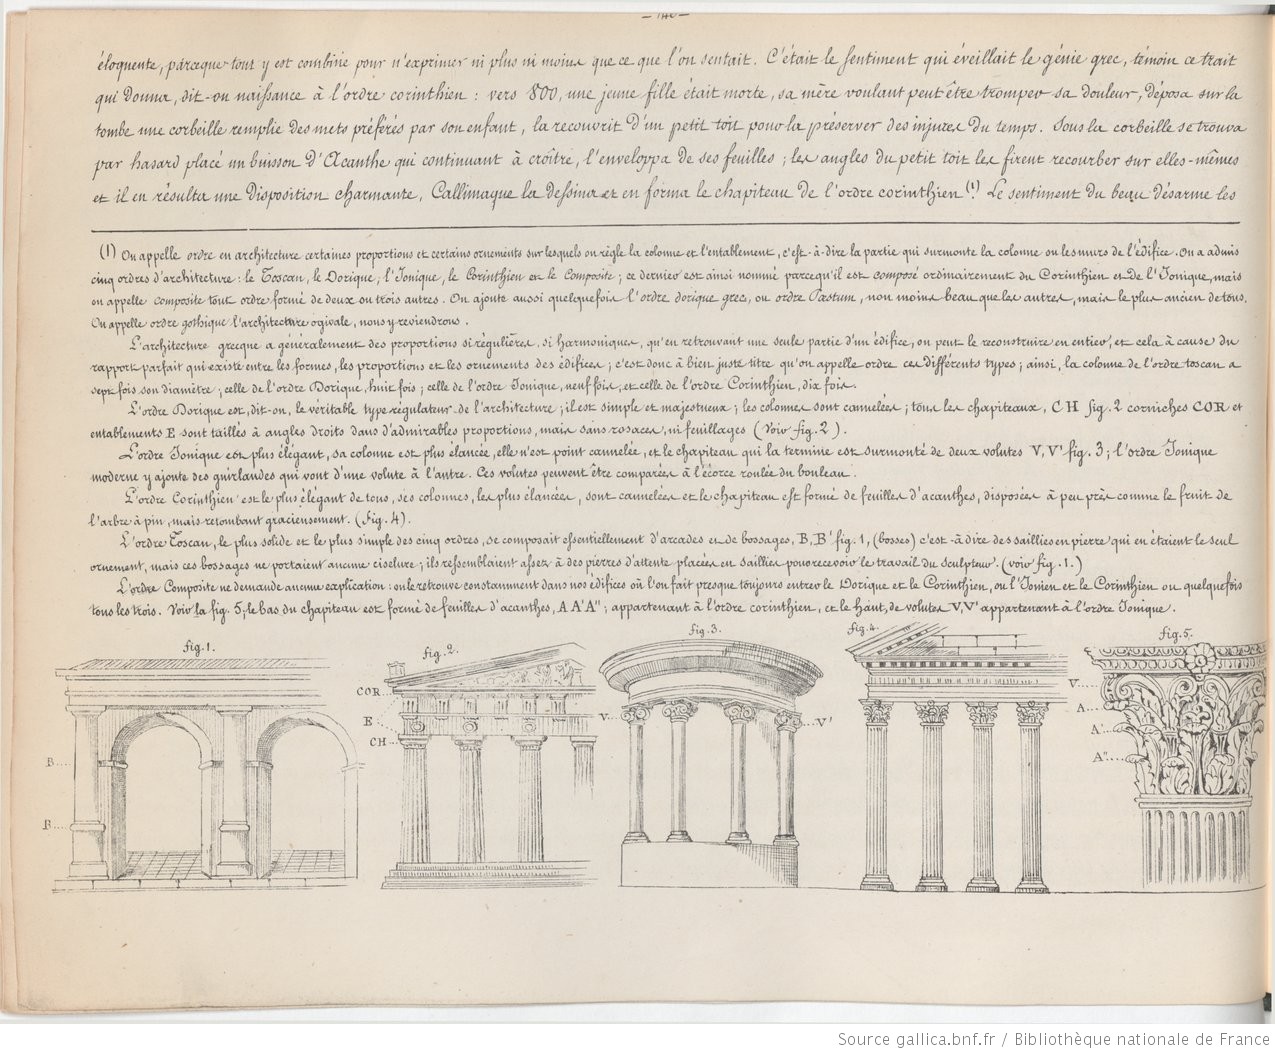 éloquente, parceque tout y est combiné pour n'exprimer ni plus ni moins que ce que l'on sentait. C'était le sentiment qui éveillait le génie grec, témoin ce trait
qui donna, dit-on naissance à l'ordre corinthien : vers 800, une jeune fille était morte, sa mère voulant peut être tromper sa douleur, déposa sur la
tombe une corbeille remplie des mets préférés par son enfant, la recouvrit d'un petit toit pour la préserver des injures du temps. Sous la corbeille se trouva
par hasard placé un buisson d'Acanthe qui continuant à croître, l'enveloppa de ses feuilles ; les angles du petit toit les firent recourber sur elles-mêmes
et il en résulta une disposition charmante, Callimaque la dessina et en forma le chapiteau de l'ordre corinthien (1). Le sentiment du beau désarme les
(1) On appelle ordre en architecture certaines proportions et certains ornements sur lesquels on règle la colonne et l'entablement, c'est-à-dire la partie qui surmonte la colonne ou les murs de l'édifice. On a admis
cinq ordres d'architecture : le Toscan, le Dorique, l'Ionique, le Corinthien et le Composite ; ce dernier est ainsi nommé parcequ'il est composé ordinairement du Corinthien et de l'Ionique, mais
on appelle composite tout ordre formé de deux ou trois autres. On ajoute aussi quelquefois l'ordre dorique grec, ou ordre Pæstum, non moins beau que les autres, mais le plus ancien de tous.
On appelle ordre gothique l'architecture ogivale, nous y reviendrons.
L'architecture grecque a généralement des proportions si régulières, si harmoniques, qu'en retrouvant une seule partie d'un édifice, on peut le reconstruire en entier, et cela à cause du
rapport parfait qui existe entre les formes, les proportions et les ornements des édifices ; c'est donc à bien juste titre qu'on appelle ordre ces différents types ; ainsi, la colonne de l'ordre toscan a
sept fois son diamètre ; celle de l'ordre Dorique, huit fois ; celle de l'ordre Ionique, neuf fois, et celle de l'ordre Corinthien, dix fois.
L'ordre Dorique est, dit-on, le véritable type régulateur de l'architecture ; il est simple et majestueux ; les colonnes sont cannelées ; tous les chapiteaux, CH fig. 2 corniches COR et
entablements E sont taillés à angles droits dans d'admirables proportions, mais sans rosaces, ni feuillages (Voir fig. 2).
L'ordre Ionique est plus élégant, sa colonne est plus élancée, elle n'est point cannelée, et le chapiteau qui la termine est surmonté de deux volutes V, V' fig. 3 ; l'ordre Ionique
moderne y ajoute des guirlandes qui vont d'une volute à l'autre. Ces volutes peuvent être comparées à l'écorce roulée du bouleau.
L'ordre Corinthien est le plus élégant de tous, ses colonnes, les plus élancées, sont cannelées et le chapiteau est formé de feuilles d'acanthes, disposées à peu près comme le fruit de
l'arbre à pin, mais retombant gracieusement. (Fig. 4).
L'ordre Toscan, le plus solide et le plus simple des cinq ordres, se composait essentiellement d'arcades et de bossages, B, B' fig. 1, (bosses) c'est-à-dire des saillies en pierre qui en étaient le seul
ornement, mais ces bossages ne portaient aucune ciselure ; ils ressemblaient assez à des pierres d'attente placées en saillies pour recevoir le travail du sculpteur. (voir fig. 1.)
L'ordre Composite ne demande aucune explication : on le retrouve constamment dans nos édifices où l'on fait presque toujours entrer le Dorique et le Corinthien, ou l'Ionien et le Corinthien ou quelquefois
tous les trois. Voir la fig. 5, le bas du chapiteau est formé de feuilles d'acanthes, A A' A" ; appartenant à l'ordre corinthien, et le haut, de volutes V, V' appartenant à l'ordre Ionique.
fig. 1.
fig. 2.
fig. 3.
fig. 4.
fig. 5.
COR
E
CH
V
V'
V
A
A'
A"
B
B
Source gallica.bnf.fr / Bibliothèque nationale de France